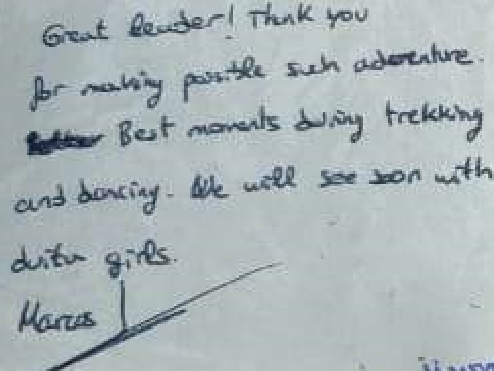 Great leader! Thank you
for making possible such adventure.
Best moments during trekking
and dancing. We will see soon with
girls.
Marcos